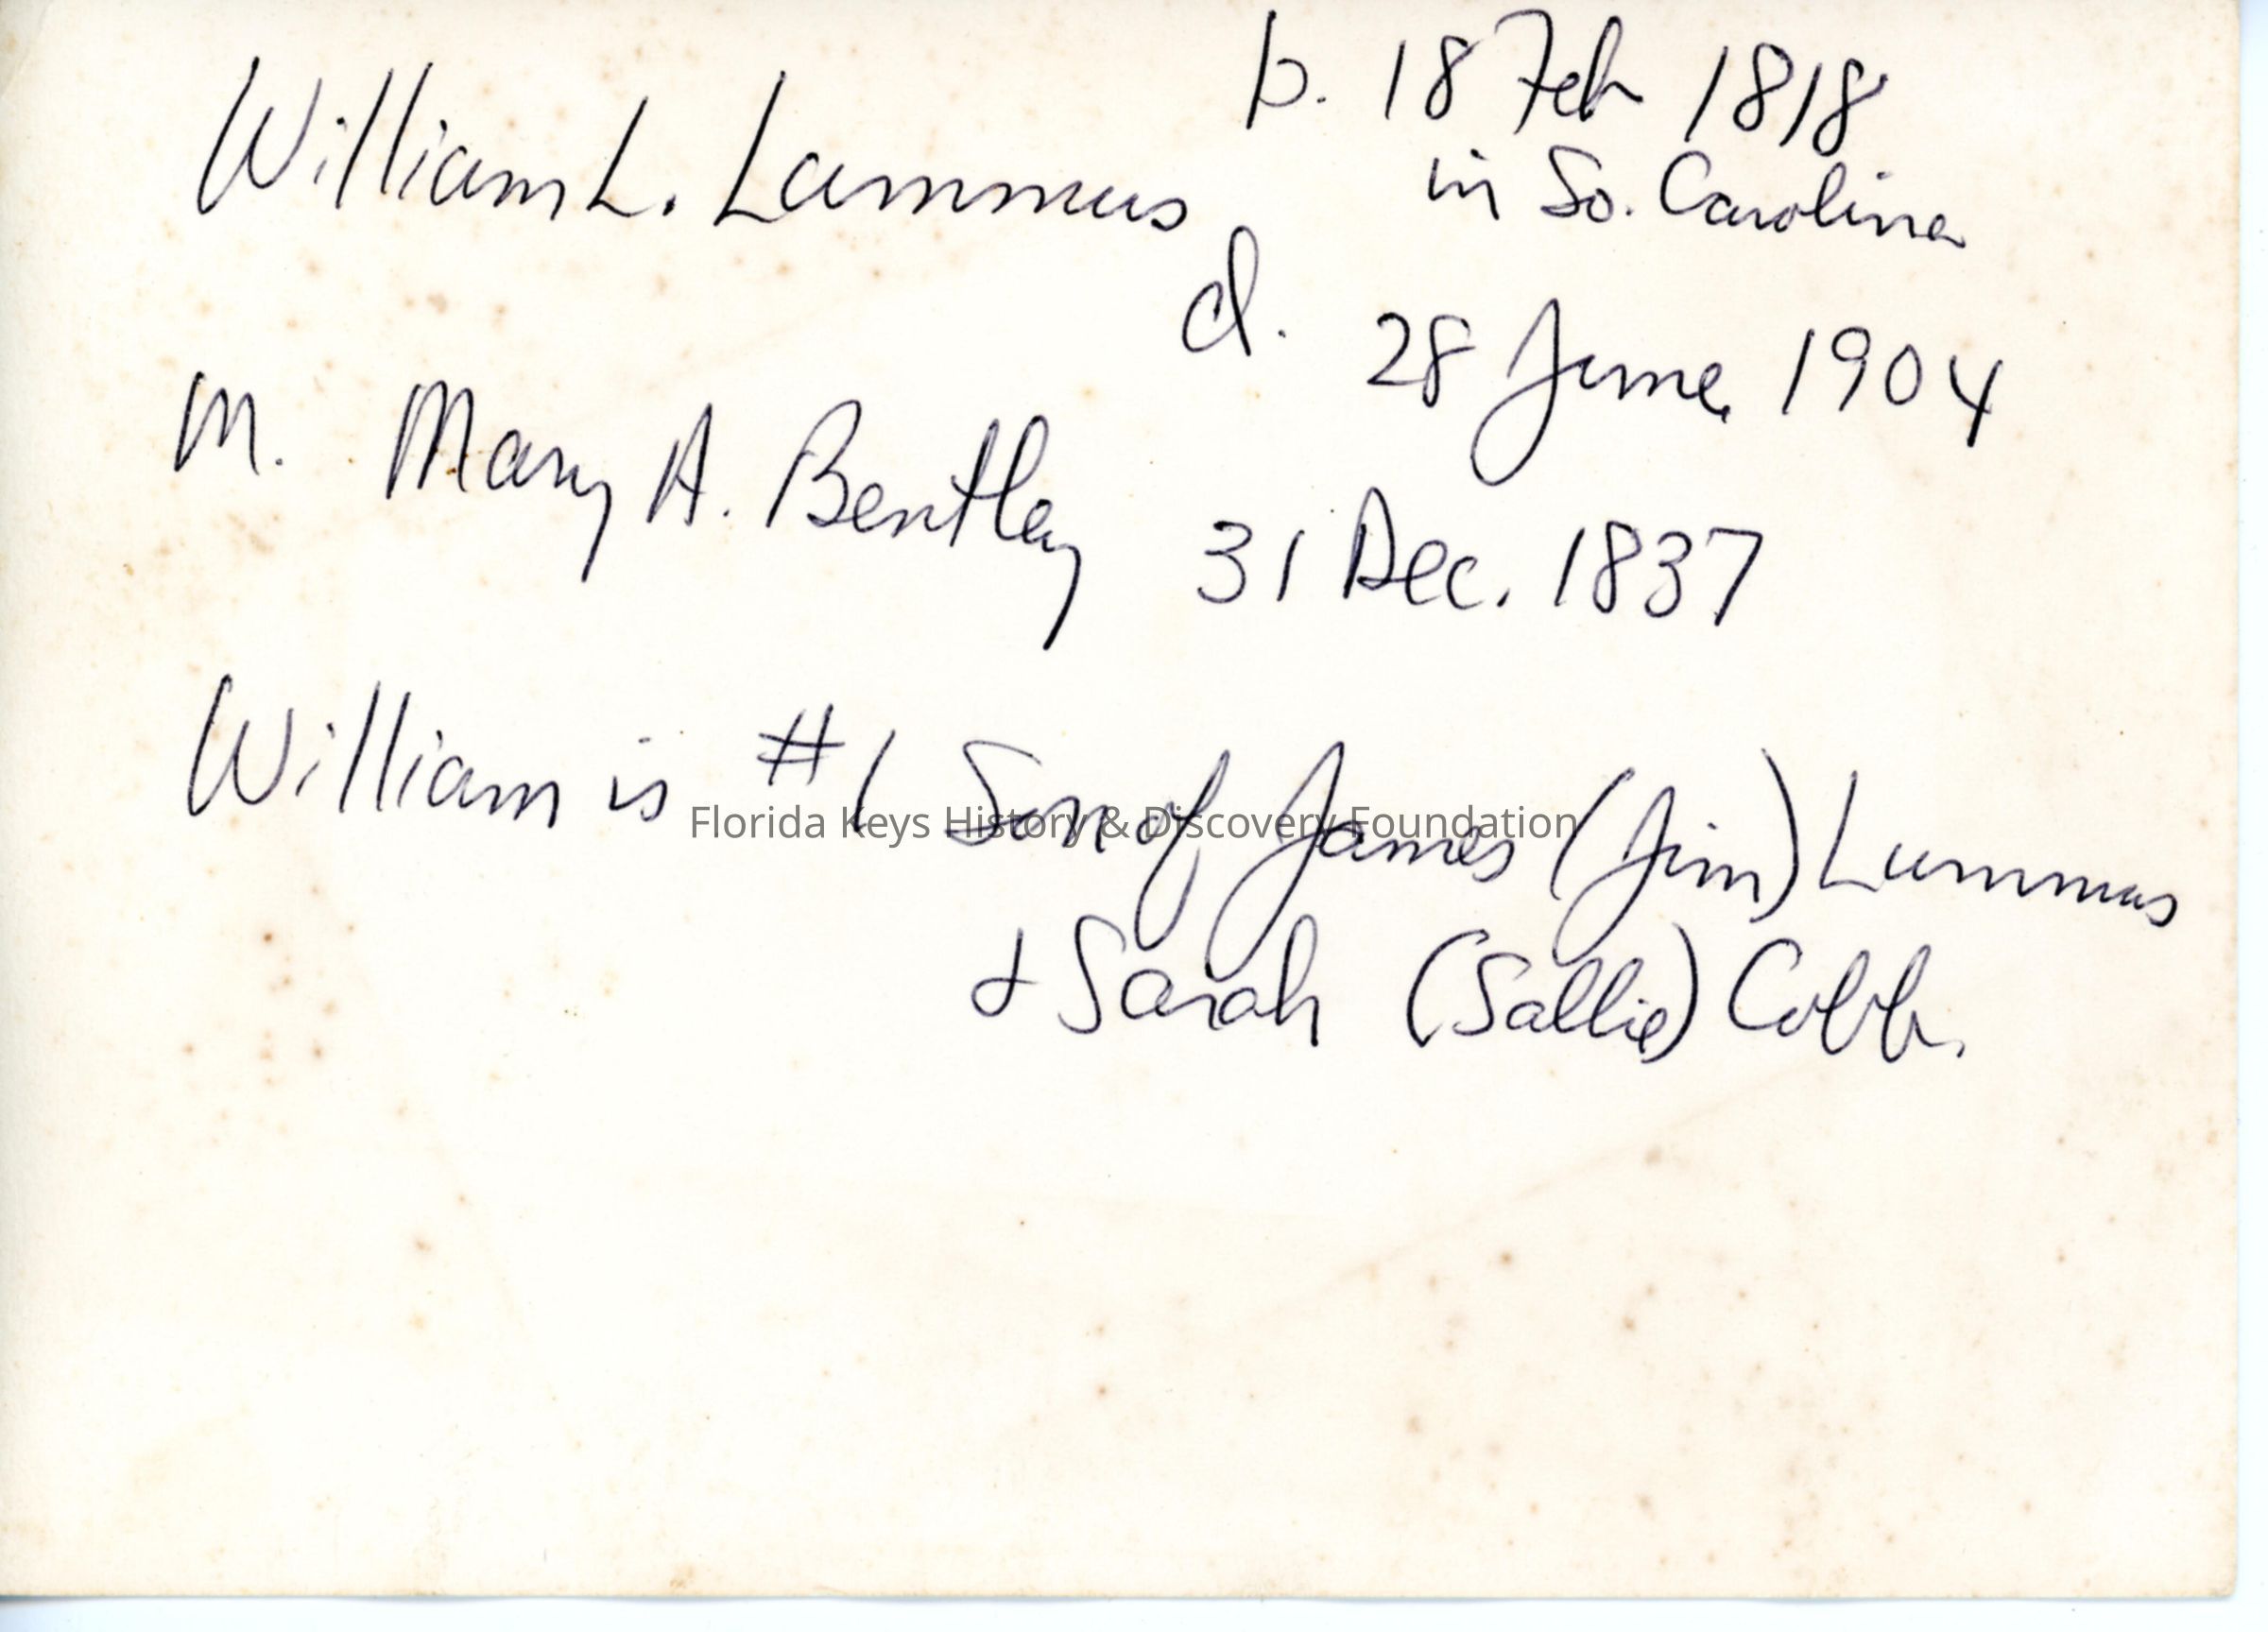 William L. Lammus
b. 18 Feb 1818
in So. Carolina
d. 28 June 1904
M. Mary A. Bentley 31 Dec. 1837
William is #1 Son of James (Jim) Lummus
& Sarah (Sallie) Cobb.
Florida Keys History & Discovery Foundation